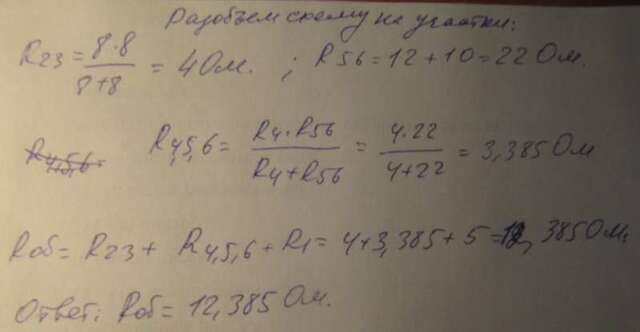 Разобьем схему на участки:
R23 = 8·8 / 8+8 = 4 Ом. ; R56 = 12 + 10 = 22 Ом.
R4,5,6 = R4,5,6 = R4·R56 / R4+R56 = 4·22 / 4+22 = 3,385 Ом
Rоб = R23 + R4,5,6 + R1 = 4+3,385+5 = 12,385 Ом.
Ответ: Rоб = 12,385 Ом.